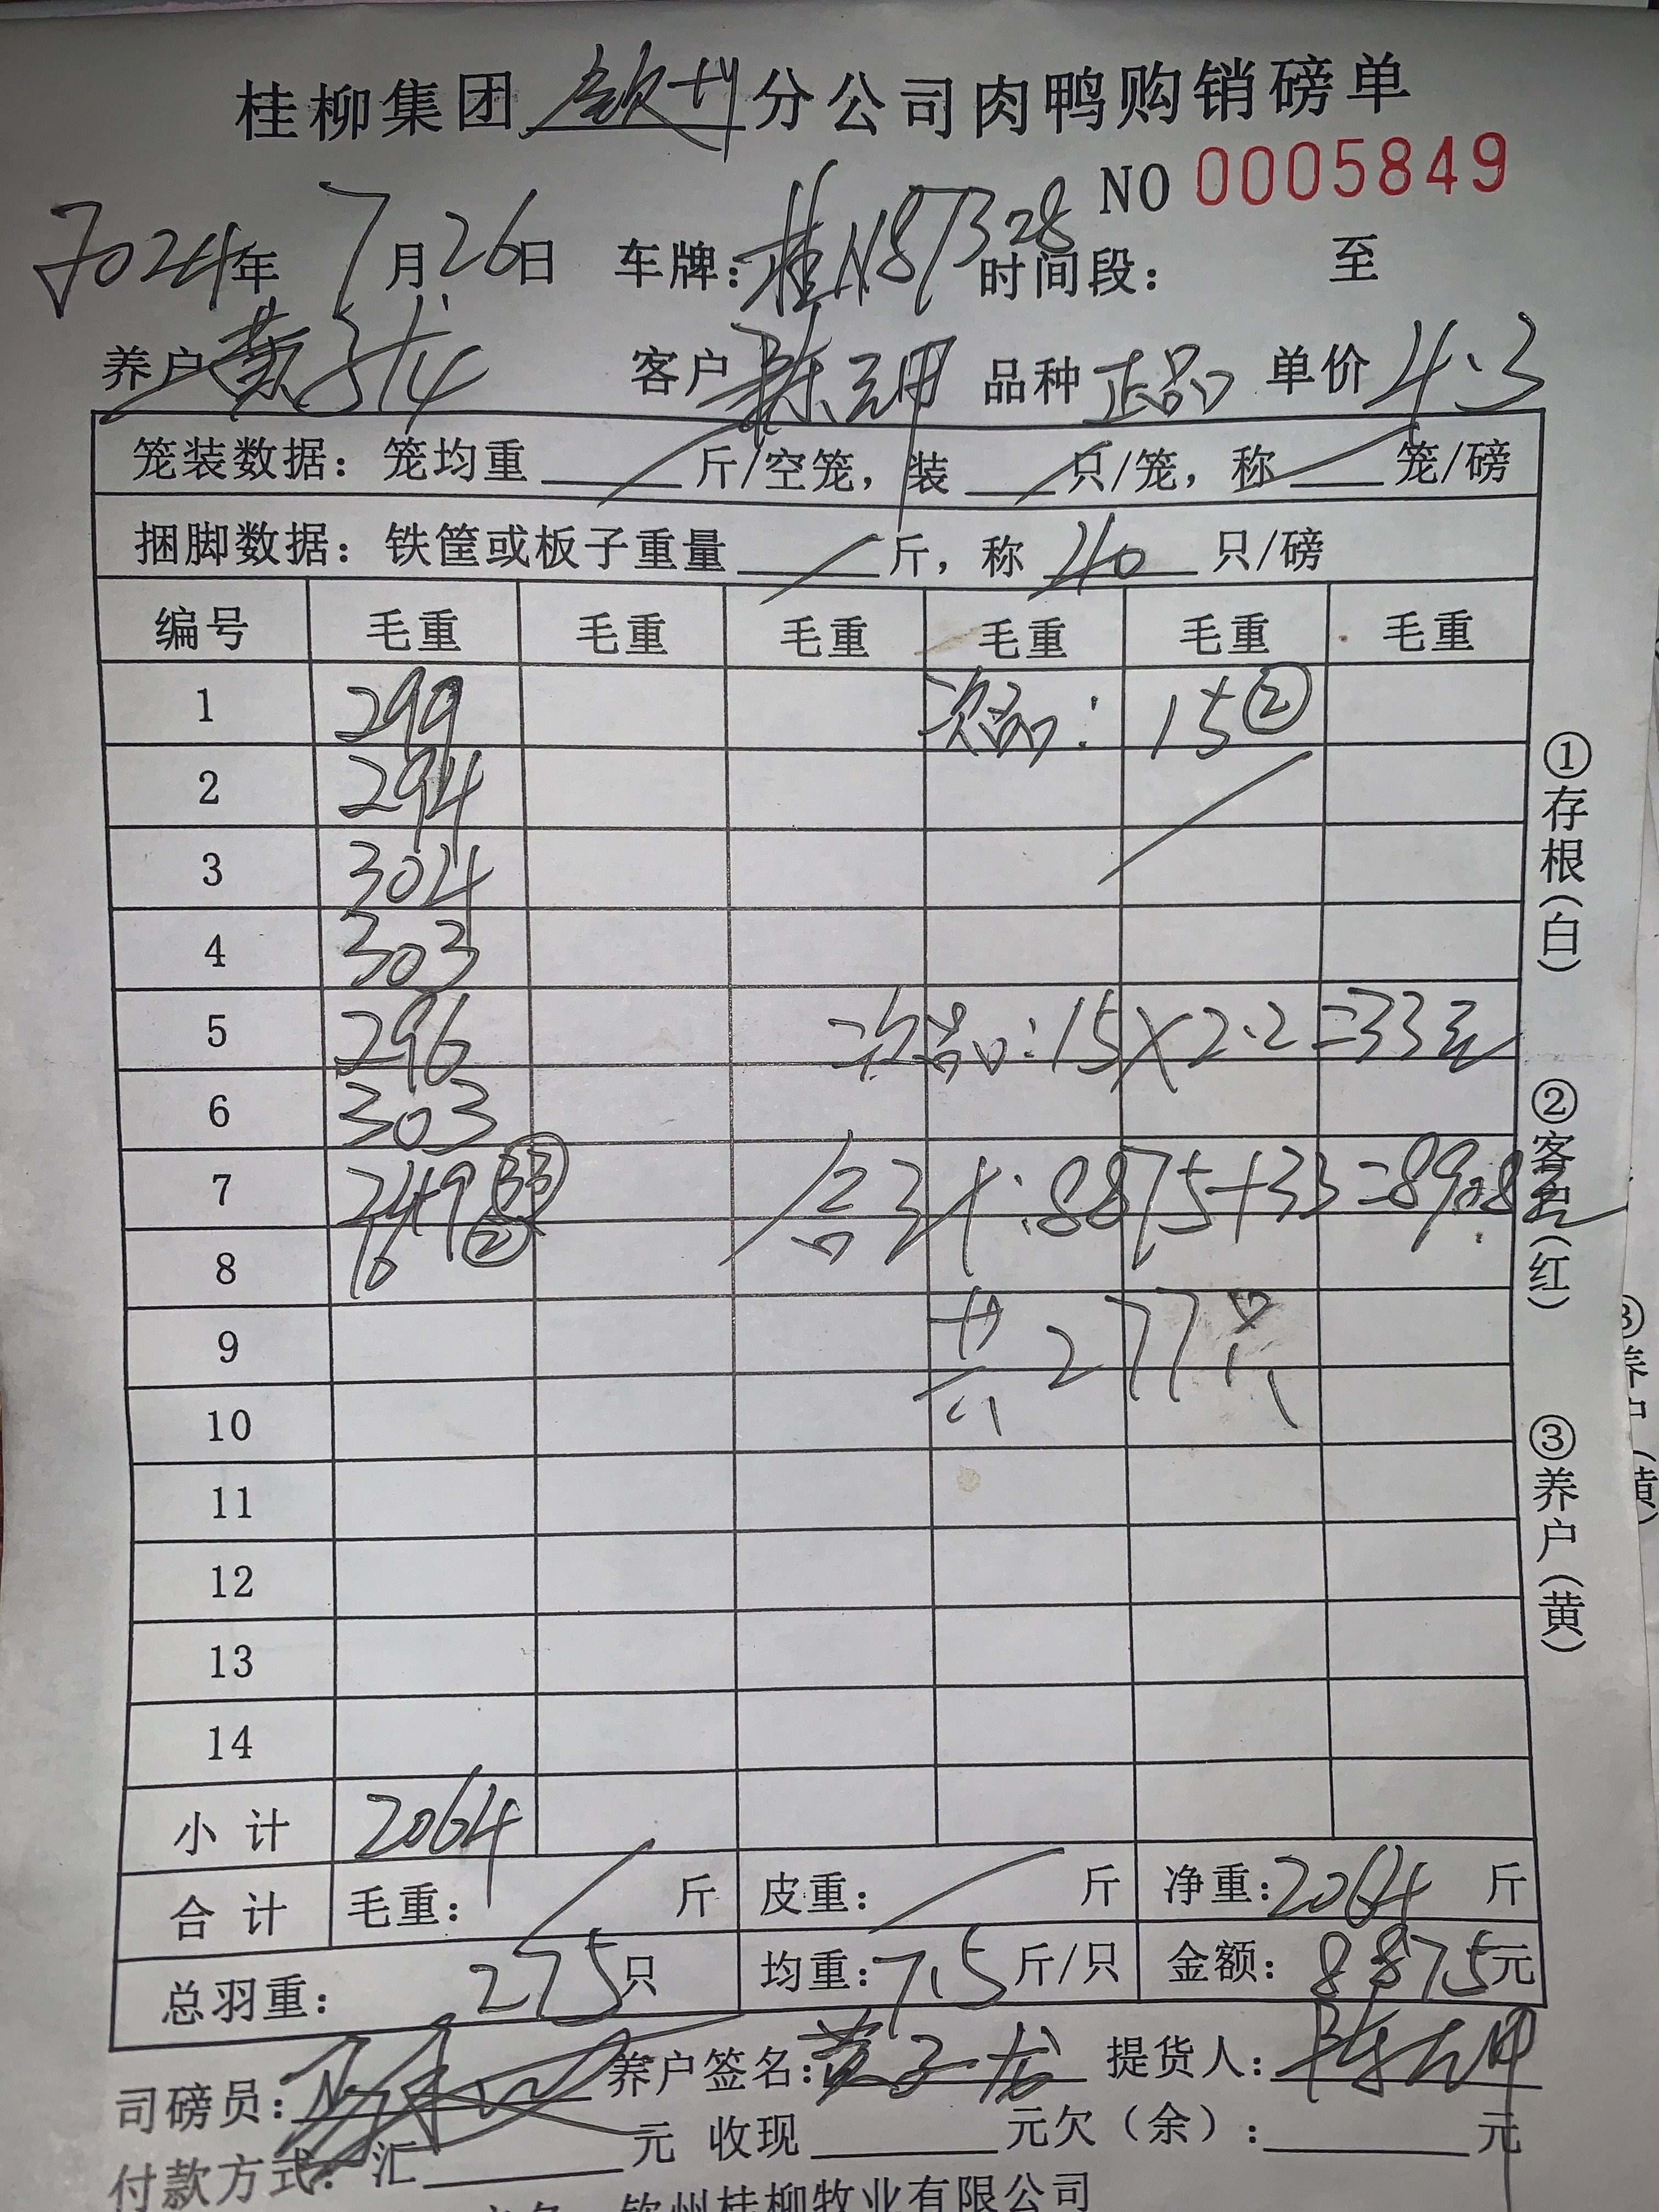 桂柳集团 钦州 分公司肉鸭购销磅单
NO 0005849
2024年 7月26日 车牌：桂N87328 时间段： 至
养户 黄子龙 客户 陈三明 品种 正品 单价 4.3
笼装数据：笼均重 斤/空笼，装 只/笼，称 笼/磅
捆脚数据：铁筐或板子重量 斤，称 40 只/磅
编号 毛重 毛重 毛重 毛重 毛重 毛重
1 299 次品： 15②
2 294
3 304
4 303
5 296 次品：15×2.2=33元
6 303
7 249 ㉝ 合计：8875+33=8908元
8 16 ②
9 共277只
10
11
12
13
14
小计 2064
合计 毛重： 斤 皮重： 斤 净重：2064 斤
总羽重： 275只 均重：7.5斤/只 金额：8875元
司磅员： 养户签名：黄子龙 提货人：
付款方式：汇 元 收现 元欠（余）： 元
钦州桂柳牧业有限公司
①存根（白）
②客户（红）
③养户（黄）